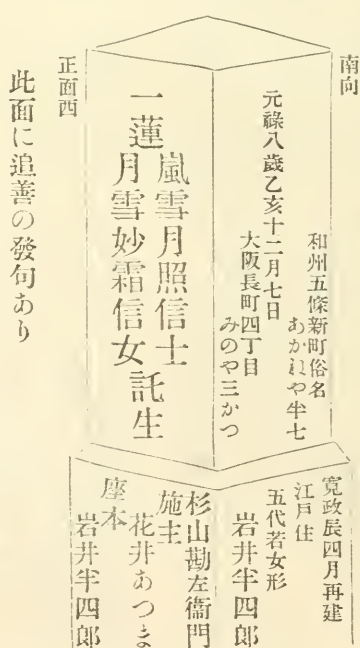 南向
和州五條新町俗名
あかねや半七
元祿八歲乙亥十二月七日
大阪長町四丁目
みのや三かつ
嵐雪月照信士
一蓮
月雪妙霜信女
託生
正面西
此面に追善の發句あり
寬政辰四月再建
江戶住
五代若女形
岩井半四郎
杉山勘左衞門
施主
花井あつま
座本
岩井半四郎